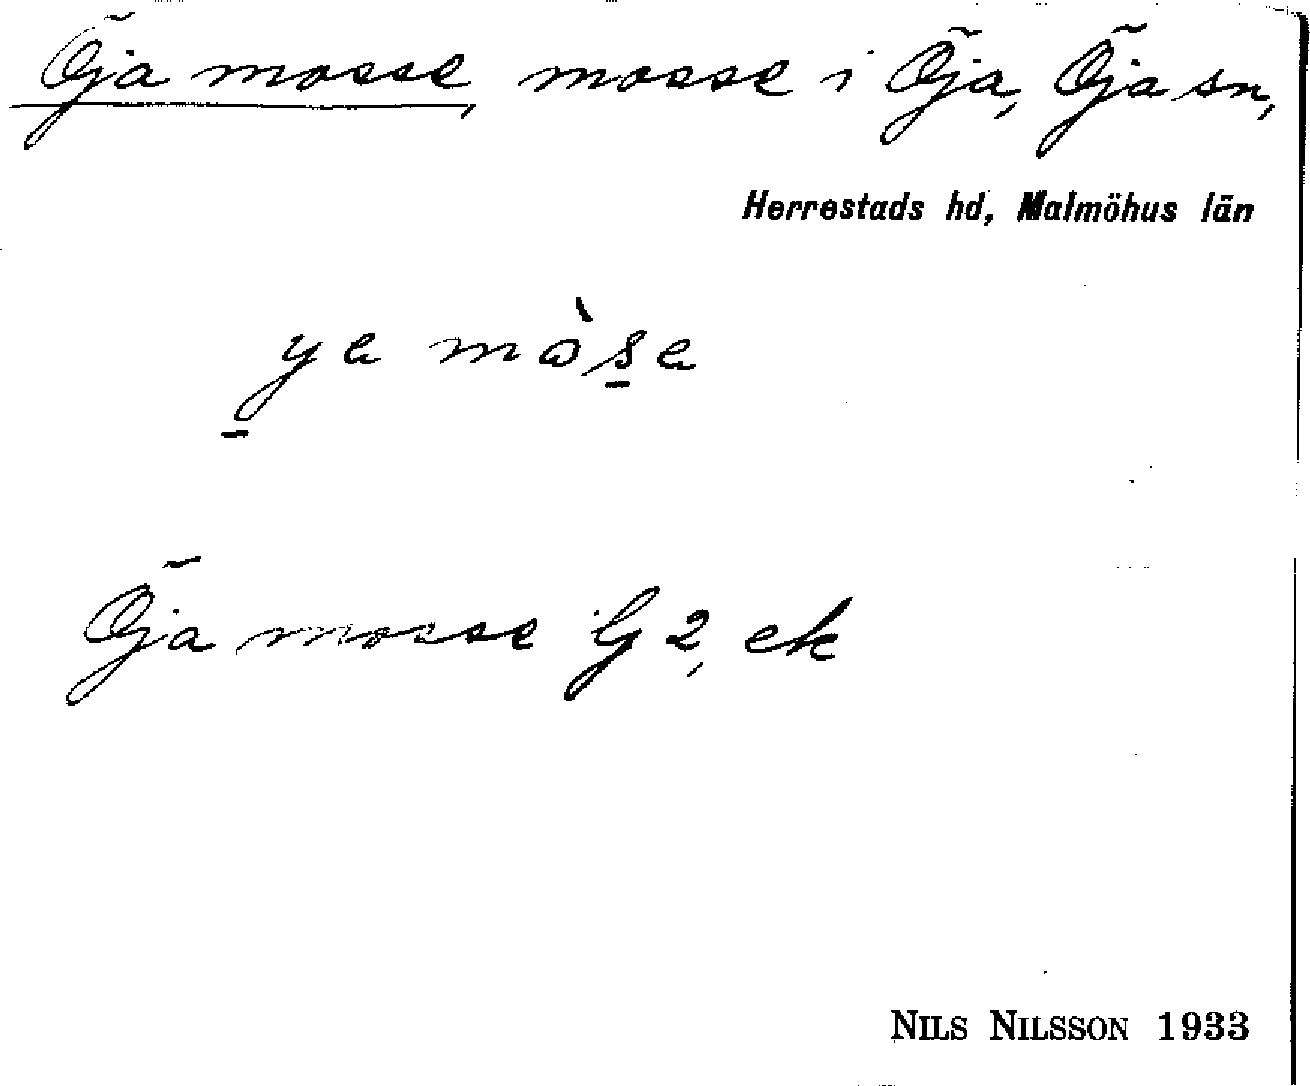 Öja mosse, mosse i Öja, Öja sn,
Herrestads hd, Malmöhus län
ya mòsa
Öja mosse G 2, ek
NILS NILSSON 1933